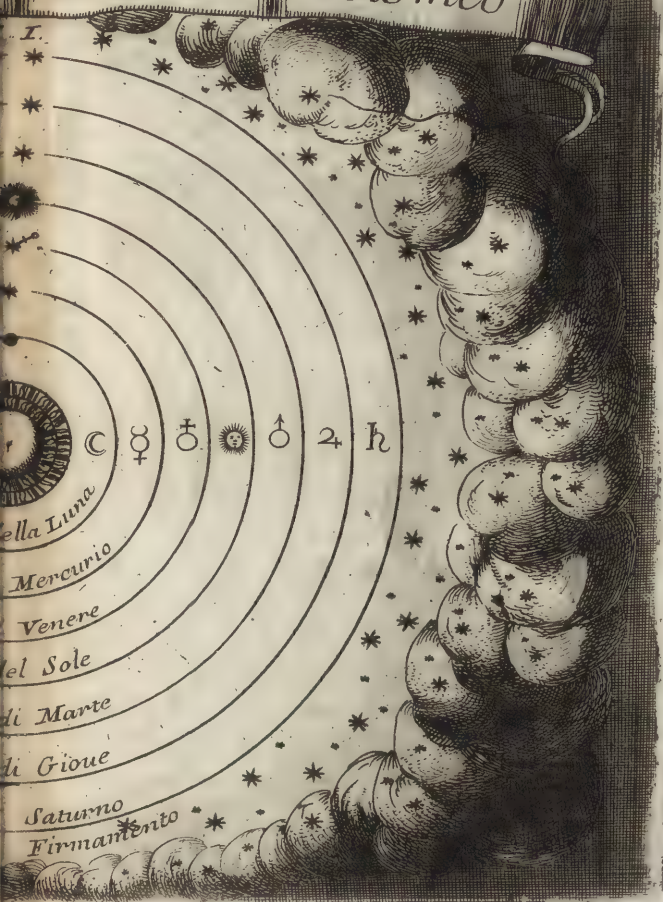 I.
ella Luna
Mercurio
Venere
del Sole
di Marte
di Gioue
Saturno
Firmamento